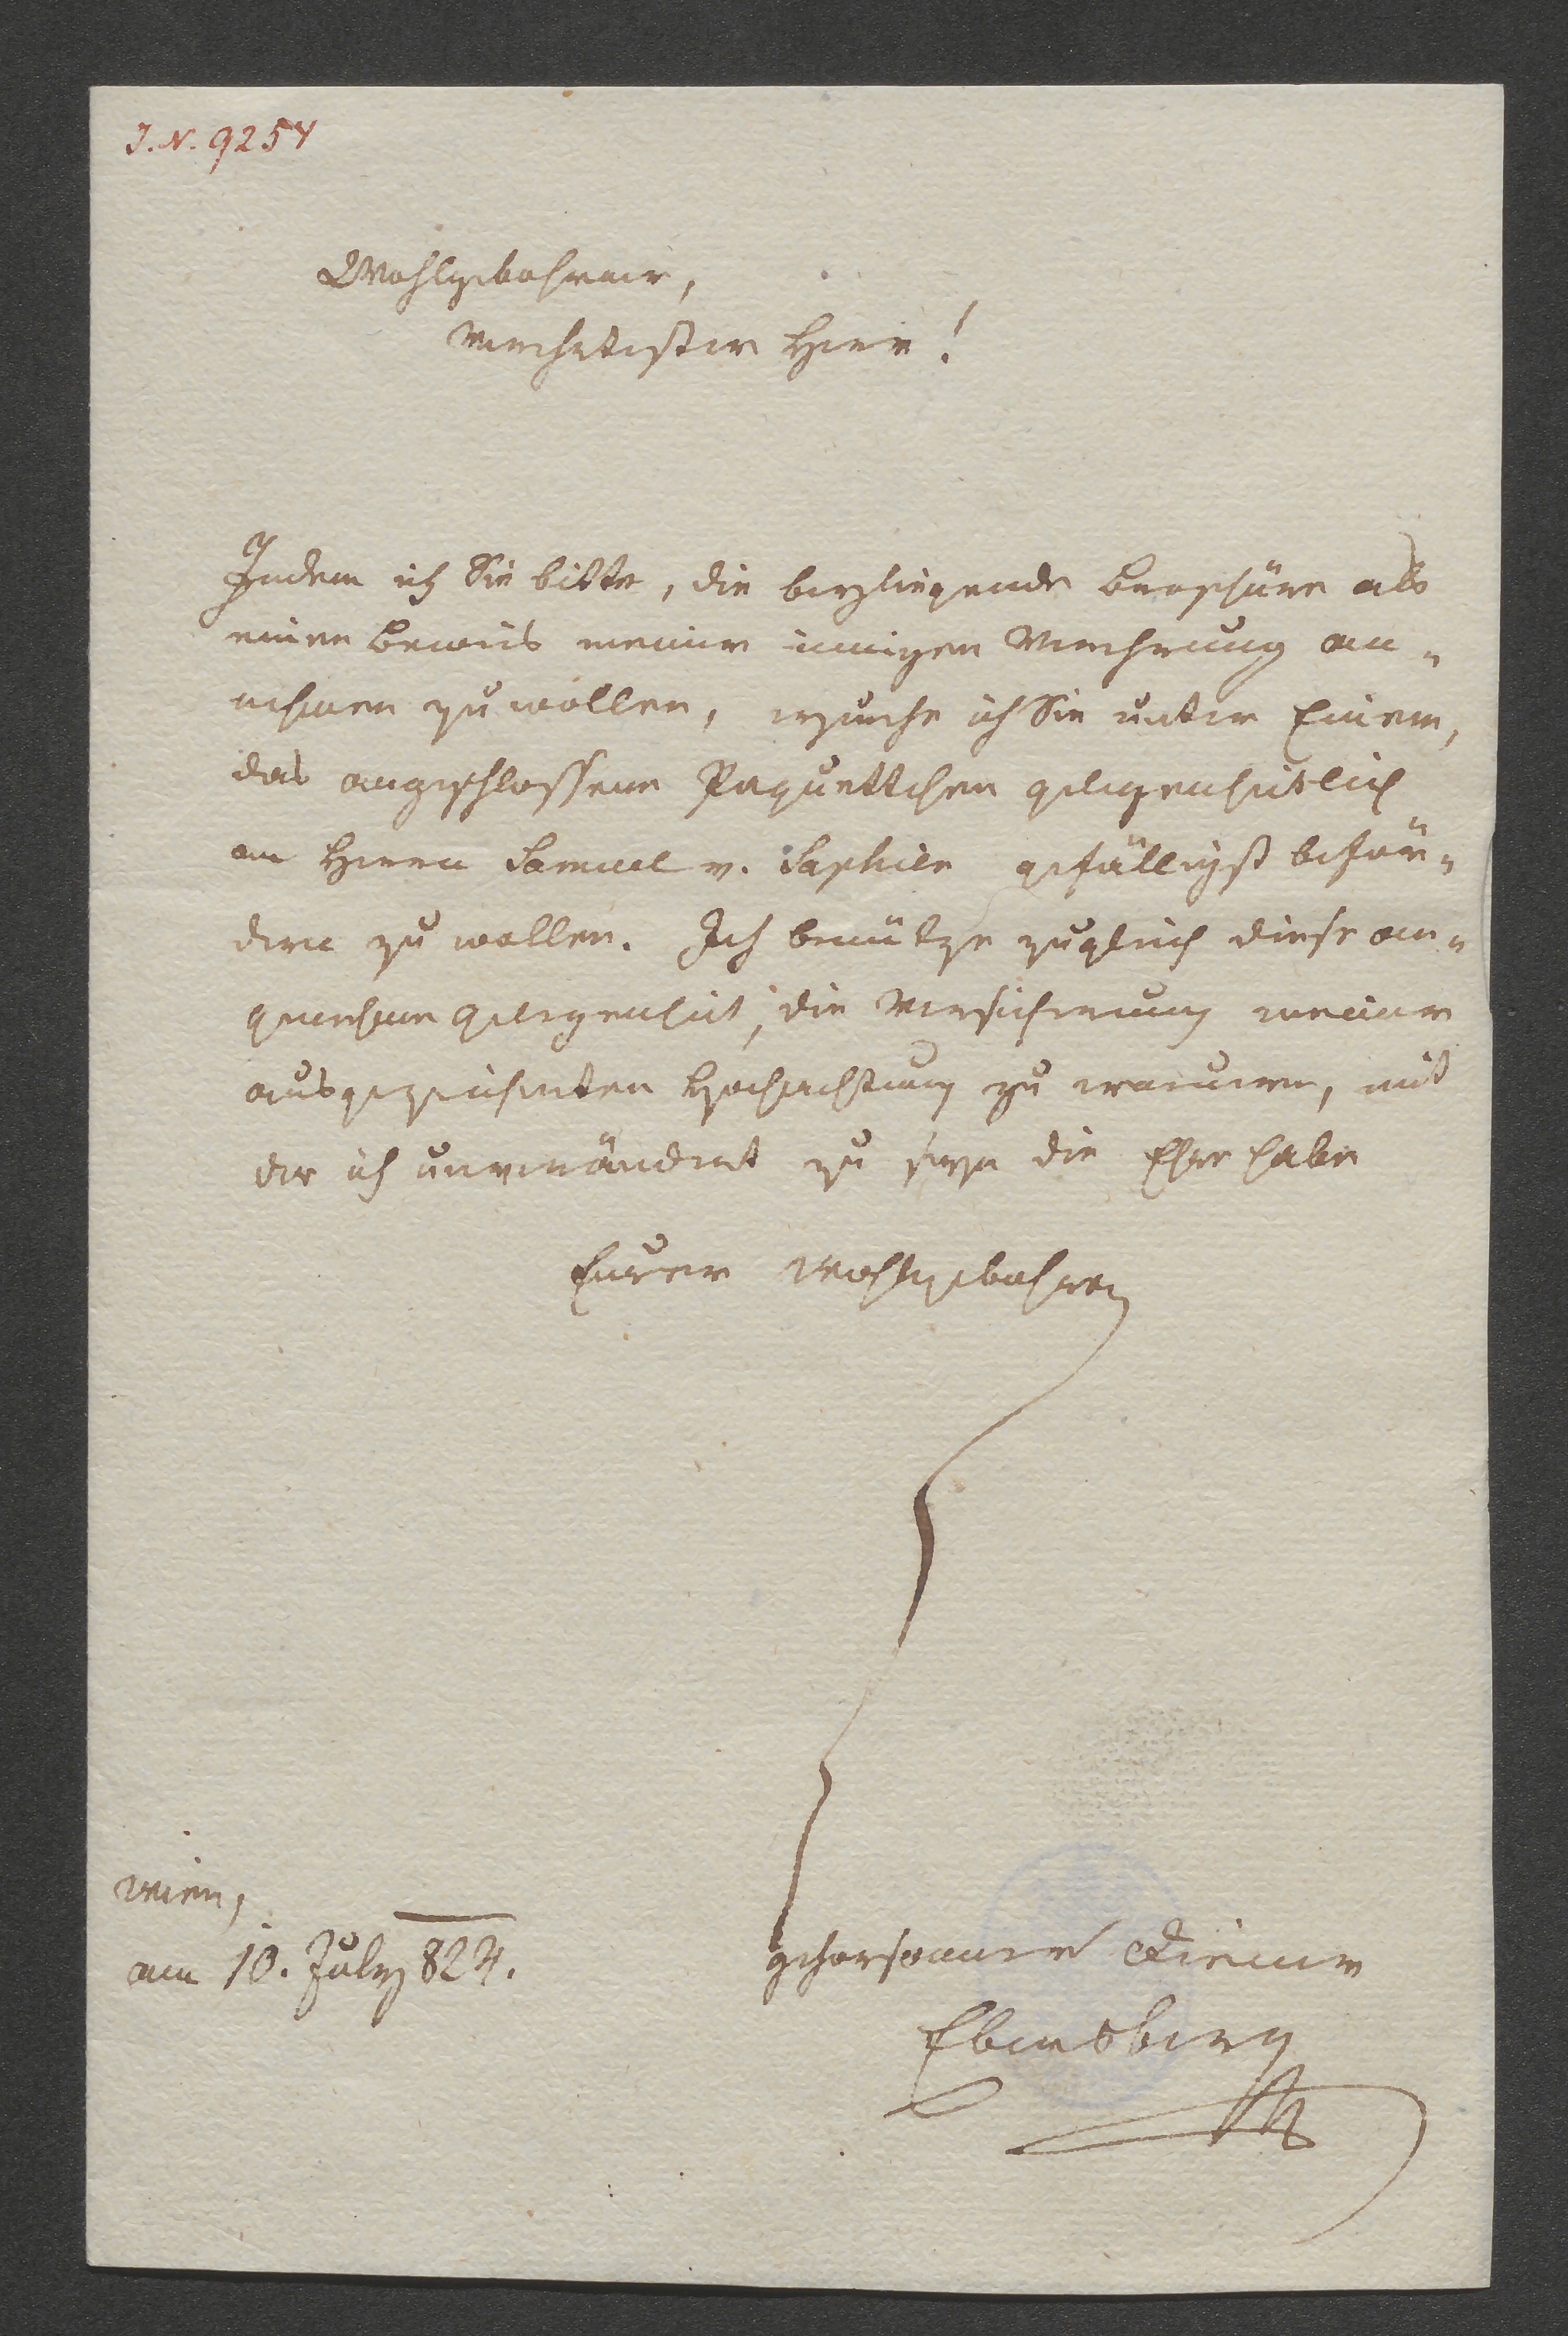 I. N. 9254
Wohlgebohrner,
Verehrtester Herr!
Indem ich Sie bitte, die beyliegende Broschüre als
einen Beweis meiner innigen Verehrung an-
nehmen zu wollen, ersuche ich Sie unter Einem,
das angeschlossene Paquettchen gelegenheitlich
an Herrn Samuel v. Saphir gefälligst beför-
dern zu wollen. Ich benütze zugleich diese an-
genehme Gelegenheit, die Versicherung meiner
ausgezeichneten Hochachtung zu erneuern, mit
der ich unverändert zu seyn die Ehre habe
Eurer Wohlgebohren
Wien,
am 10. July 824.
gehorsamer Diener
Ebersberg